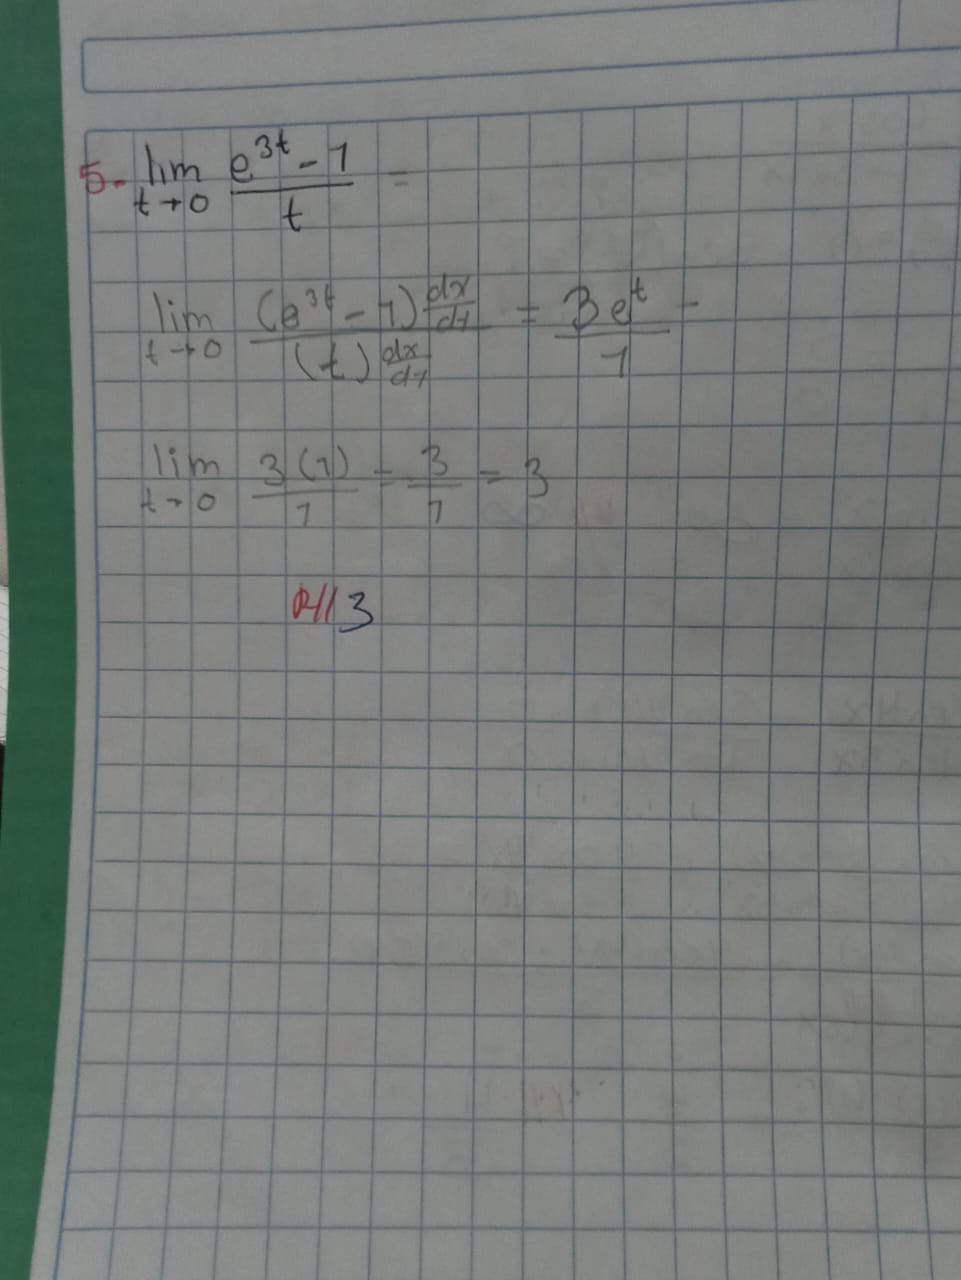 5. lim t→0 (e^3t - 1)/t =
lim t→0 (e^3t - 1) dx/dy / (t) dx/dy = 3e^t/1 -
lim t→0 3(1)/1 = 3/1 = 3
R// 3